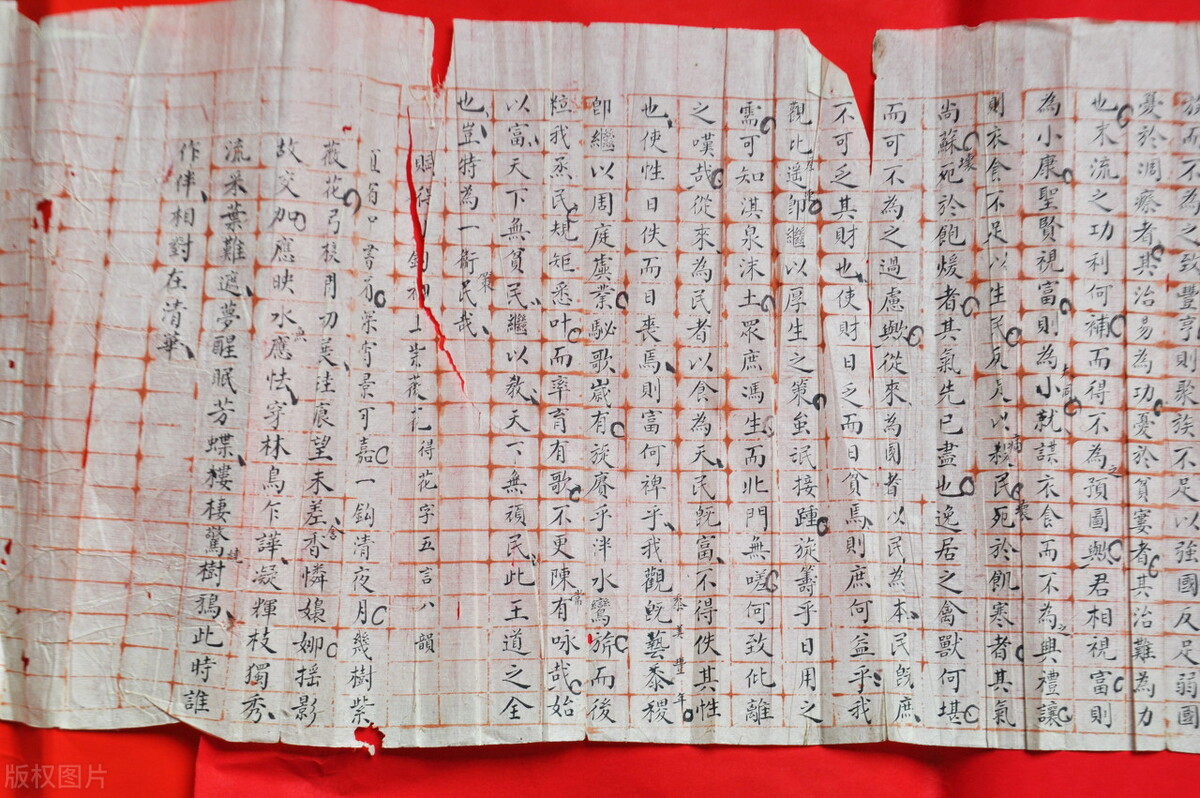 於而不為之致豐亨則聚族不足以強國反足弱國
憂於凋瘵者其治易為功憂於貧窶者其治難為力
也末流之功利何補而得不為之預圖與君相視富則
為小康聖賢視富則為小就謀衣食而不為之興禮讓
則衣食不足以生民反足以殺民死於飢寒者其氣
尚蘇死於飽煖者其氣先已盡也逸居之禽獸何堪
而可不為之過慮與從來為國者以民為本民既庶
不可乏其財也使財日乏而日貧焉則庶何益乎我
觀比遥即繼以厚生之策蚩泯接踵旋籌乎日用之
需可知淇泉沬土眾庶馮生而北門無嗟何致仳離
之嘆哉從來為民者以食為天民既富不得佚其性
也使性日佚而日喪焉則富何裨乎我觀既藝黍稷
黍其豐年
即繼以周庭虡業駜歌歲有旋賡乎泮水鸞旂而後
粒我烝民規矩悉叶而率育有歌不更陳有咏哉始
常
以富天下無貧民繼以教天下無頑民此王道之全
也豈特為一衛民哉
賦得 上紫薇花得花字五言八韻
深宵景可嘉一鈎清夜月幾樹紫
薇花弓樣月初美洼痕望未差香憐嬝娜搖影
故交加應映水應怯穿林鳥乍譁凝輝枝獨秀
流采葉難遮夢醒眠芳蝶樓棲驚樹鴉此時誰
作伴相對在清華
版权图片